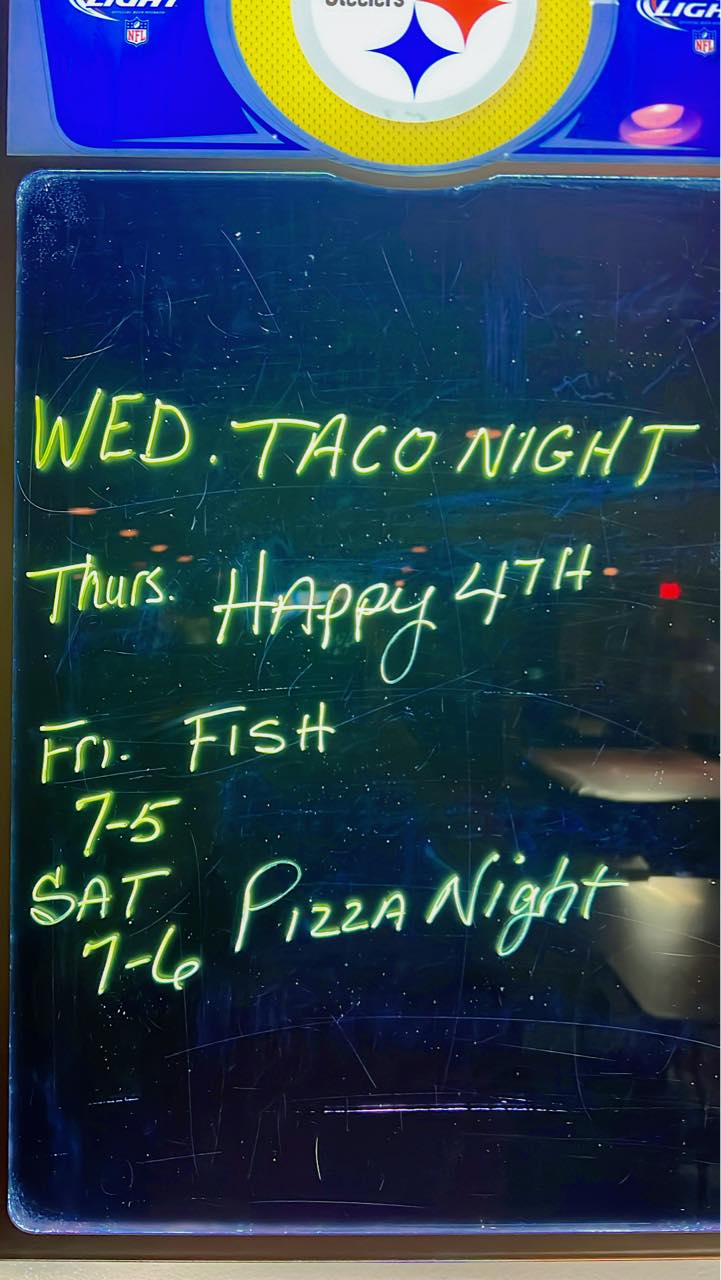 LIGHT
NFL
Steelers
LIGH
NFL
WED. TACO NIGHT
Thurs. HAPPY 4TH
Fri. FISH
7-5
SAT PIZZA Night
7-6